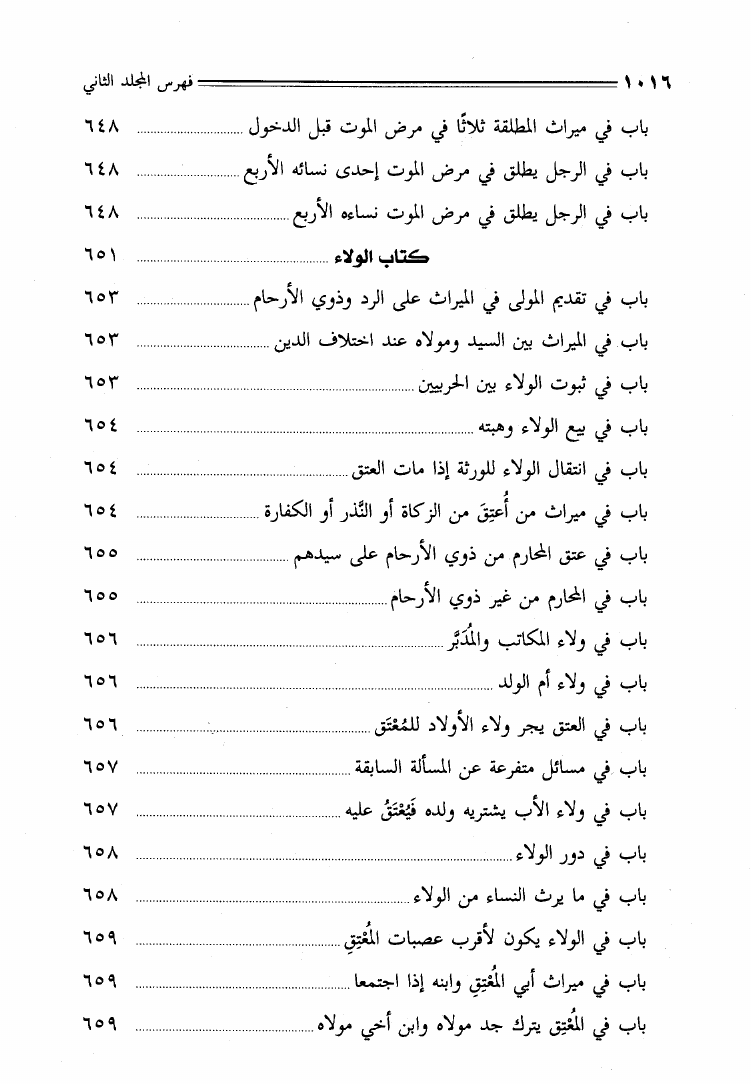 ١٠١٦ فهرس المجلد الثاني
باب في ميراث المطلقة ثلاثًا في مرض الموت قبل الدخول ٦٤٨
باب في الرجل يطلق في مرض الموت إحدى نسائه الأربع ٦٤٨
باب في الرجل يطلق في مرض الموت نساءه الأربع ٦٤٨
كتاب الولاء ٦٥١
باب في تقديم المولى في الميراث على الرد وذوي الأرحام ٦٥٣
باب في الميراث بين السيد ومولاه عند اختلاف الدين ٦٥٣
باب في ثبوت الولاء بين الحربيين ٦٥٣
باب في بيع الولاء وهبته ٦٥٤
باب في انتقال الولاء للورثة إذا مات العتق ٦٥٤
باب في ميراث من أُعتِقَ من الزكاة أو النَّذر أو الكفارة ٦٥٤
باب في عتق المحارم من ذوي الأرحام على سيدهم ٦٥٥
باب في المحارم من غير ذوي الأرحام ٦٥٥
باب في ولاء المكاتب والمُدَبَّر ٦٥٦
باب في ولاء أم الولد ٦٥٦
باب في العتق يجر ولاء الأولاد للمُعْتَق ٦٥٦
باب في مسائل متفرعة عن المسألة السابقة ٦٥٧
باب في ولاء الأب يشتريه ولده فَيُعْتَقُ عليه ٦٥٧
باب في دور الولاء ٦٥٨
باب في ما يرث النساء من الولاء ٦٥٨
باب في الولاء يكون لأقرب عصبات المُعْتِقِ ٦٥٩
باب في ميراث أبي المُعْتِقِ وابنه إذا اجتمعا ٦٥٩
باب في المُعْتِق يترك جد مولاه وابن أخي مولاه ٦٥٩